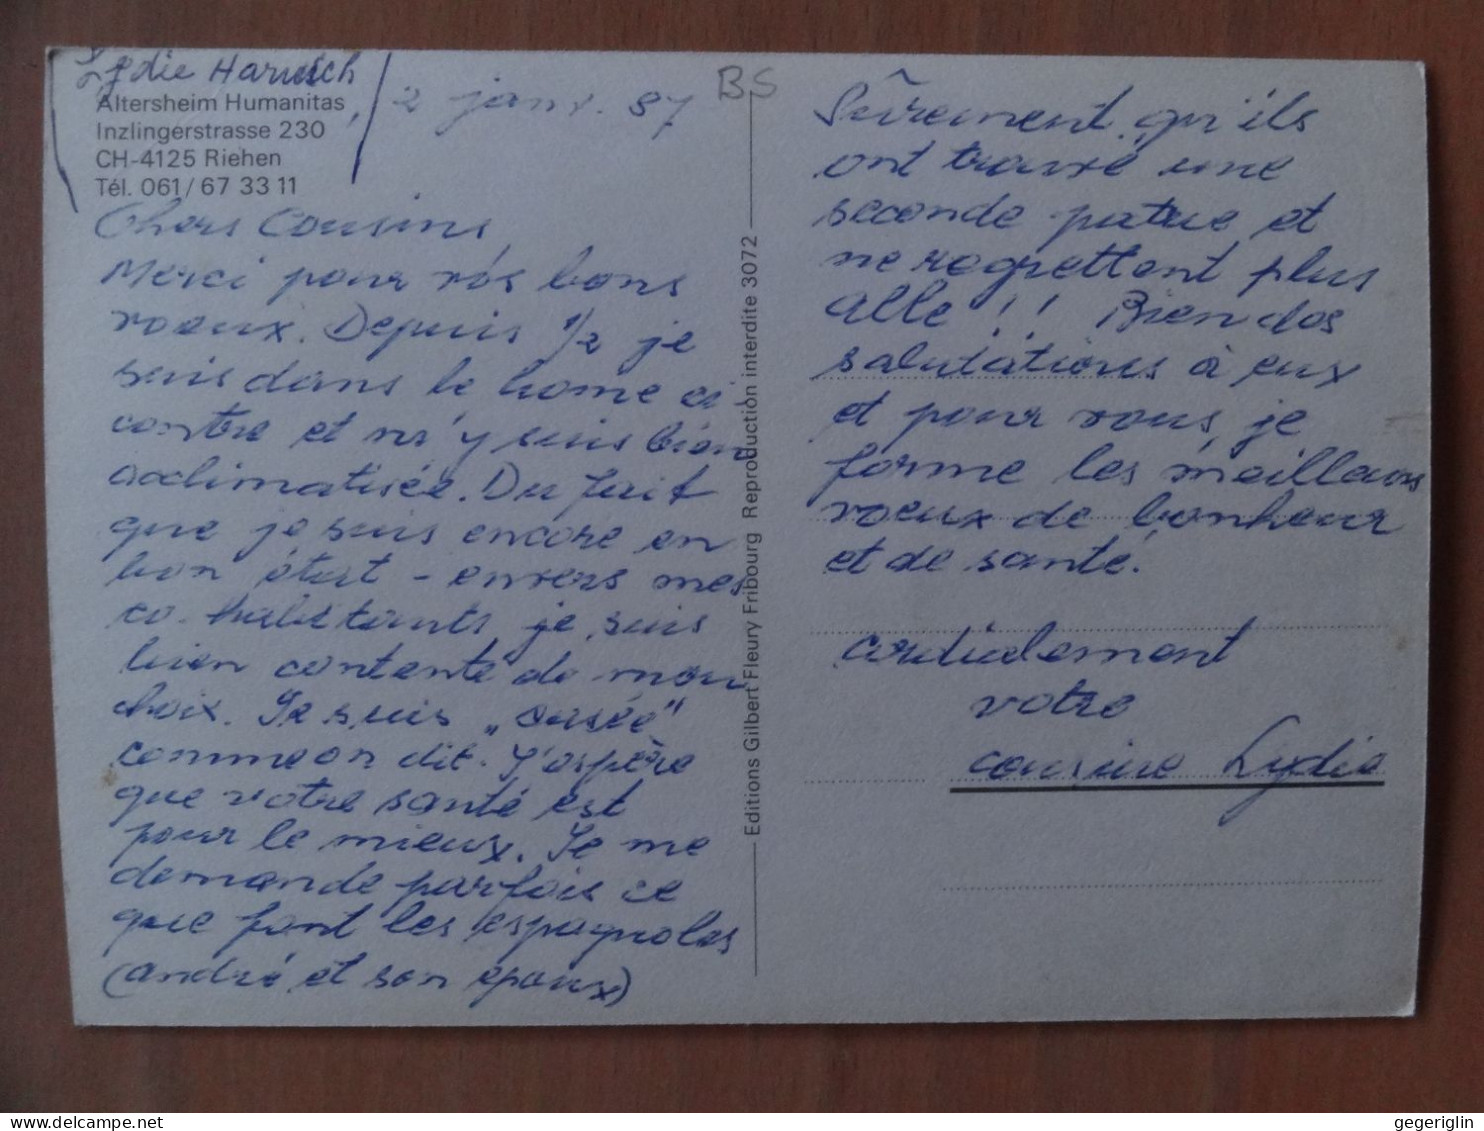 Lydie Harnisch
Altersheim Humanitas,
Inzlingerstrasse 230
CH-4125 Riehen
Tél. 061/67 33 11
2 janv. 87
BS
Chers Cousins,
Merci pour vos bons
voeux. Depuis 1/2 je
suis dans le home ci
contre et m'y suis bien
acclimatisée. Du fait
que je suis encore en
bon état - envers mes
co-habitants, je suis
bien contente de mon
choix. Je suis „casée"
comme on dit. J'espère
que votre santé est
pour le mieux. Je me
demande parfois ce
que font les espagnoles
(andré et son epoux)
Editions Gilbert Fleury Fribourg Reproduction interdite 3072
Sûrement qu'ils
ont trouvé une
seconde patrie et
ne regrettent plus
alle!! Bien des
salutations à eux
et pour vous, je
forme les meilleurs
voeux de bonheur
et de santé.
cordialement
votre
cousine Lydie
gegeriglin
delcampe.net